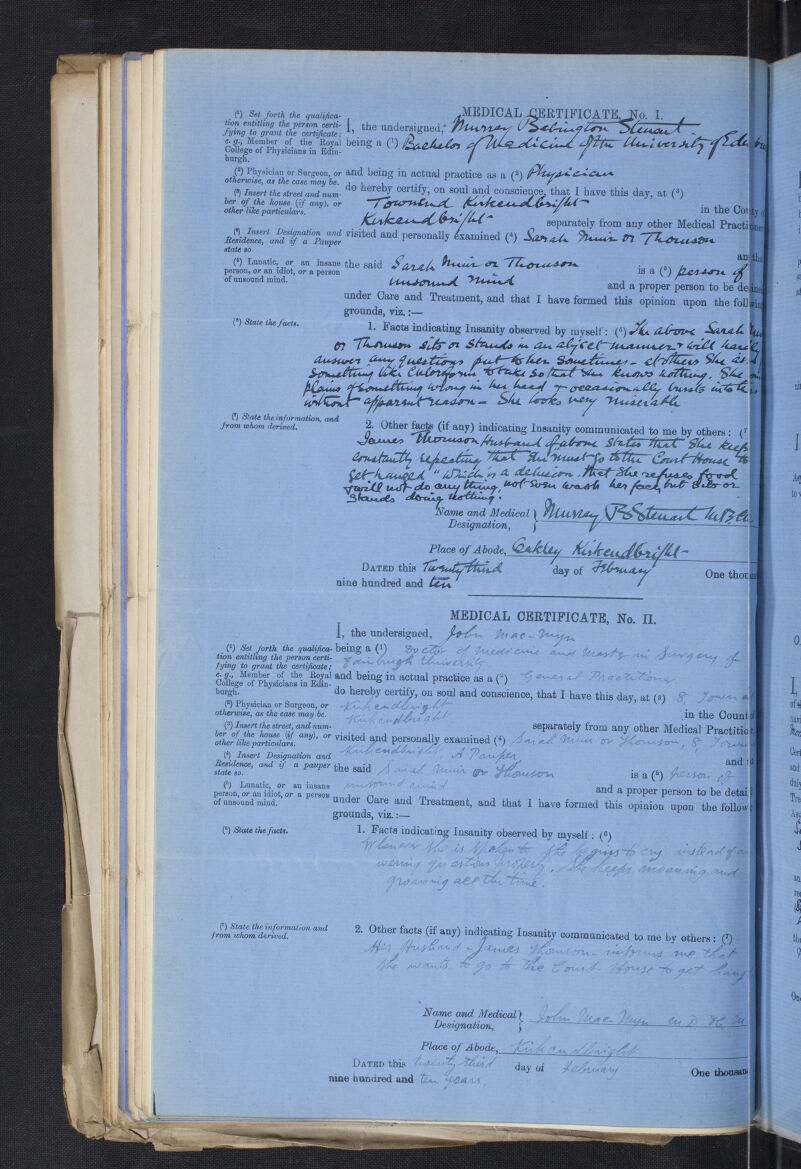 MEDICAL CERTIFICATE, No. I.
(¹) Set forth the qualifica-
tion entitling the person certi-
fying to grant the certificate;
e.g., Member of the Royal
College of Physicians in Edin-
burgh.
I, the undersigned, Murray Babington Steuart
being a (¹) Bachelor of Medicine of the University of
(²) Physician or Surgeon, or
otherwise, as the case may be.
and being in actual practice as a (²) Physician
(³) Insert the street and num-
ber of the house (if any), or
other like particulars.
do hereby certify, on soul and conscience, that I have this day, at (³)
Townend Kirkcudbright in the County
Kirkcudbright separately from any other Medical
(⁴) Insert Designation and
Residence, and if a Pauper
state so.
visited and personally examined (⁴) Sarah Muir or Thomson
(⁵) Lunatic, or an insane
person, or an idiot, or a person
of unsound mind.
the said Sarah Muir or Thomson is a (⁵) person of
unsound mind and a proper person to be
under Care and Treatment, and that I have formed this opinion upon the
grounds, viz.:—
(⁶) State the facts.
1. Facts indicating Insanity observed by myself: (⁶) The above Sarah
or Thomson sits or stands in an abject manner & will
answer any questions put to her sometimes - at others she
something like Chloroform to take so that she knows nothing. She
plains of something wrong in her head & occasionally bursts into
without apparent reason - She looks very miserable
(⁷) State the information, and
from whom derived.
2. Other facts (if any) indicating Insanity communicated to me by others: (⁷
James Thomson Husband of above states that she keeps
constantly repeating that she must go to the Court House to
get hanged "which is a delusion. that she refuses food
& will not do any thing, not even wash her face, but sits or
stands doing nothing.
Name and Medical
Designation, Murray B Steuart
Place of Abode, Oakley Kirkcudbright
DATED this Twenty third day of February One
nine hundred and ten
MEDICAL CERTIFICATE, No. II.
I, the undersigned, John Mac-Myn
(¹) Set forth the qualifica-
tion entitling the person certi-
fying to grant the certificate;
e.g., Member of the Royal
College of Physicians in Edin-
burgh.
being a (¹) Doctor of Medicine and Master in Surgery of
Edinburgh University
and being in actual practice as a (²) General Practitioner
(²) Physician or Surgeon, or
otherwise, as the case may be.
do hereby certify, on soul and conscience, that I have this day, at (³) 8,
Kirkcudbright in the
Kirkcudbright separately from any other Medical
(³) Insert the street, and num-
ber of the house (if any), or
other like particulars.
visited and personally examined (⁴) Sarah Muir or Thomson, 8,
Kirkcudbright A Pauper and
(⁴) Insert Designation and
Residence, and if a pauper
state so.
the said Sarah Muir or Thomson is a (⁵) person of
(⁵) Lunatic, or an insane
person, or an idiot, or a person
of unsound mind.
unsound mind and a proper person to be
under Care and Treatment, and that I have formed this opinion upon the
grounds, viz.:—
(⁶) State the facts.
1. Facts indicating Insanity observed by myself: (⁶)
Whenever she is spoken to she begins to cry instead of
wering questions properly. She keeps moaning and
groaning all the time.
(⁷) State the information and
from whom derived.
2. Other facts (if any) indicating Insanity communicated to me by others: (⁷)
Her Husband - James Thomson - informs me that
she wants to go to the Court House to get
Name and Medical
Designation, John Mac-Myn
Place of Abode, Kirkcudbright
DATED this twenty third day of February One
nine hundred and ten years.